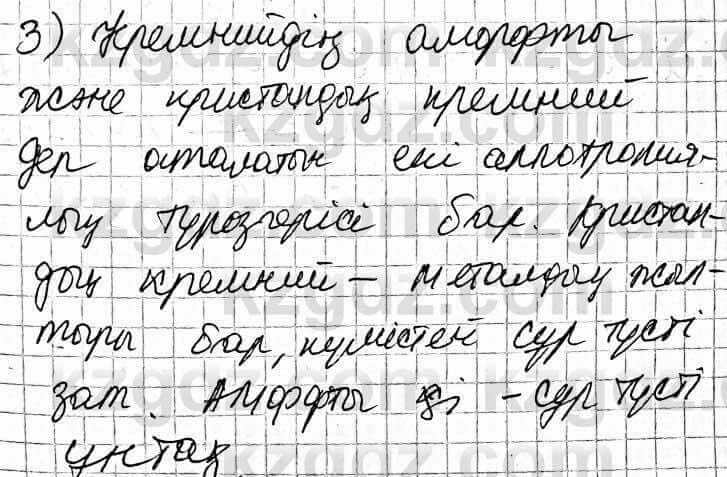 3) Кремнийдің аморфты
және кристалдық кремний
деп аталатын екі аллотропия-
лық түрөзгерісі бар. Кристал-
дық кремний – металдық жыл-
тыры бар, күмістей сұр түсті
зат. Аморфты – сұр түсті
ұнтақ